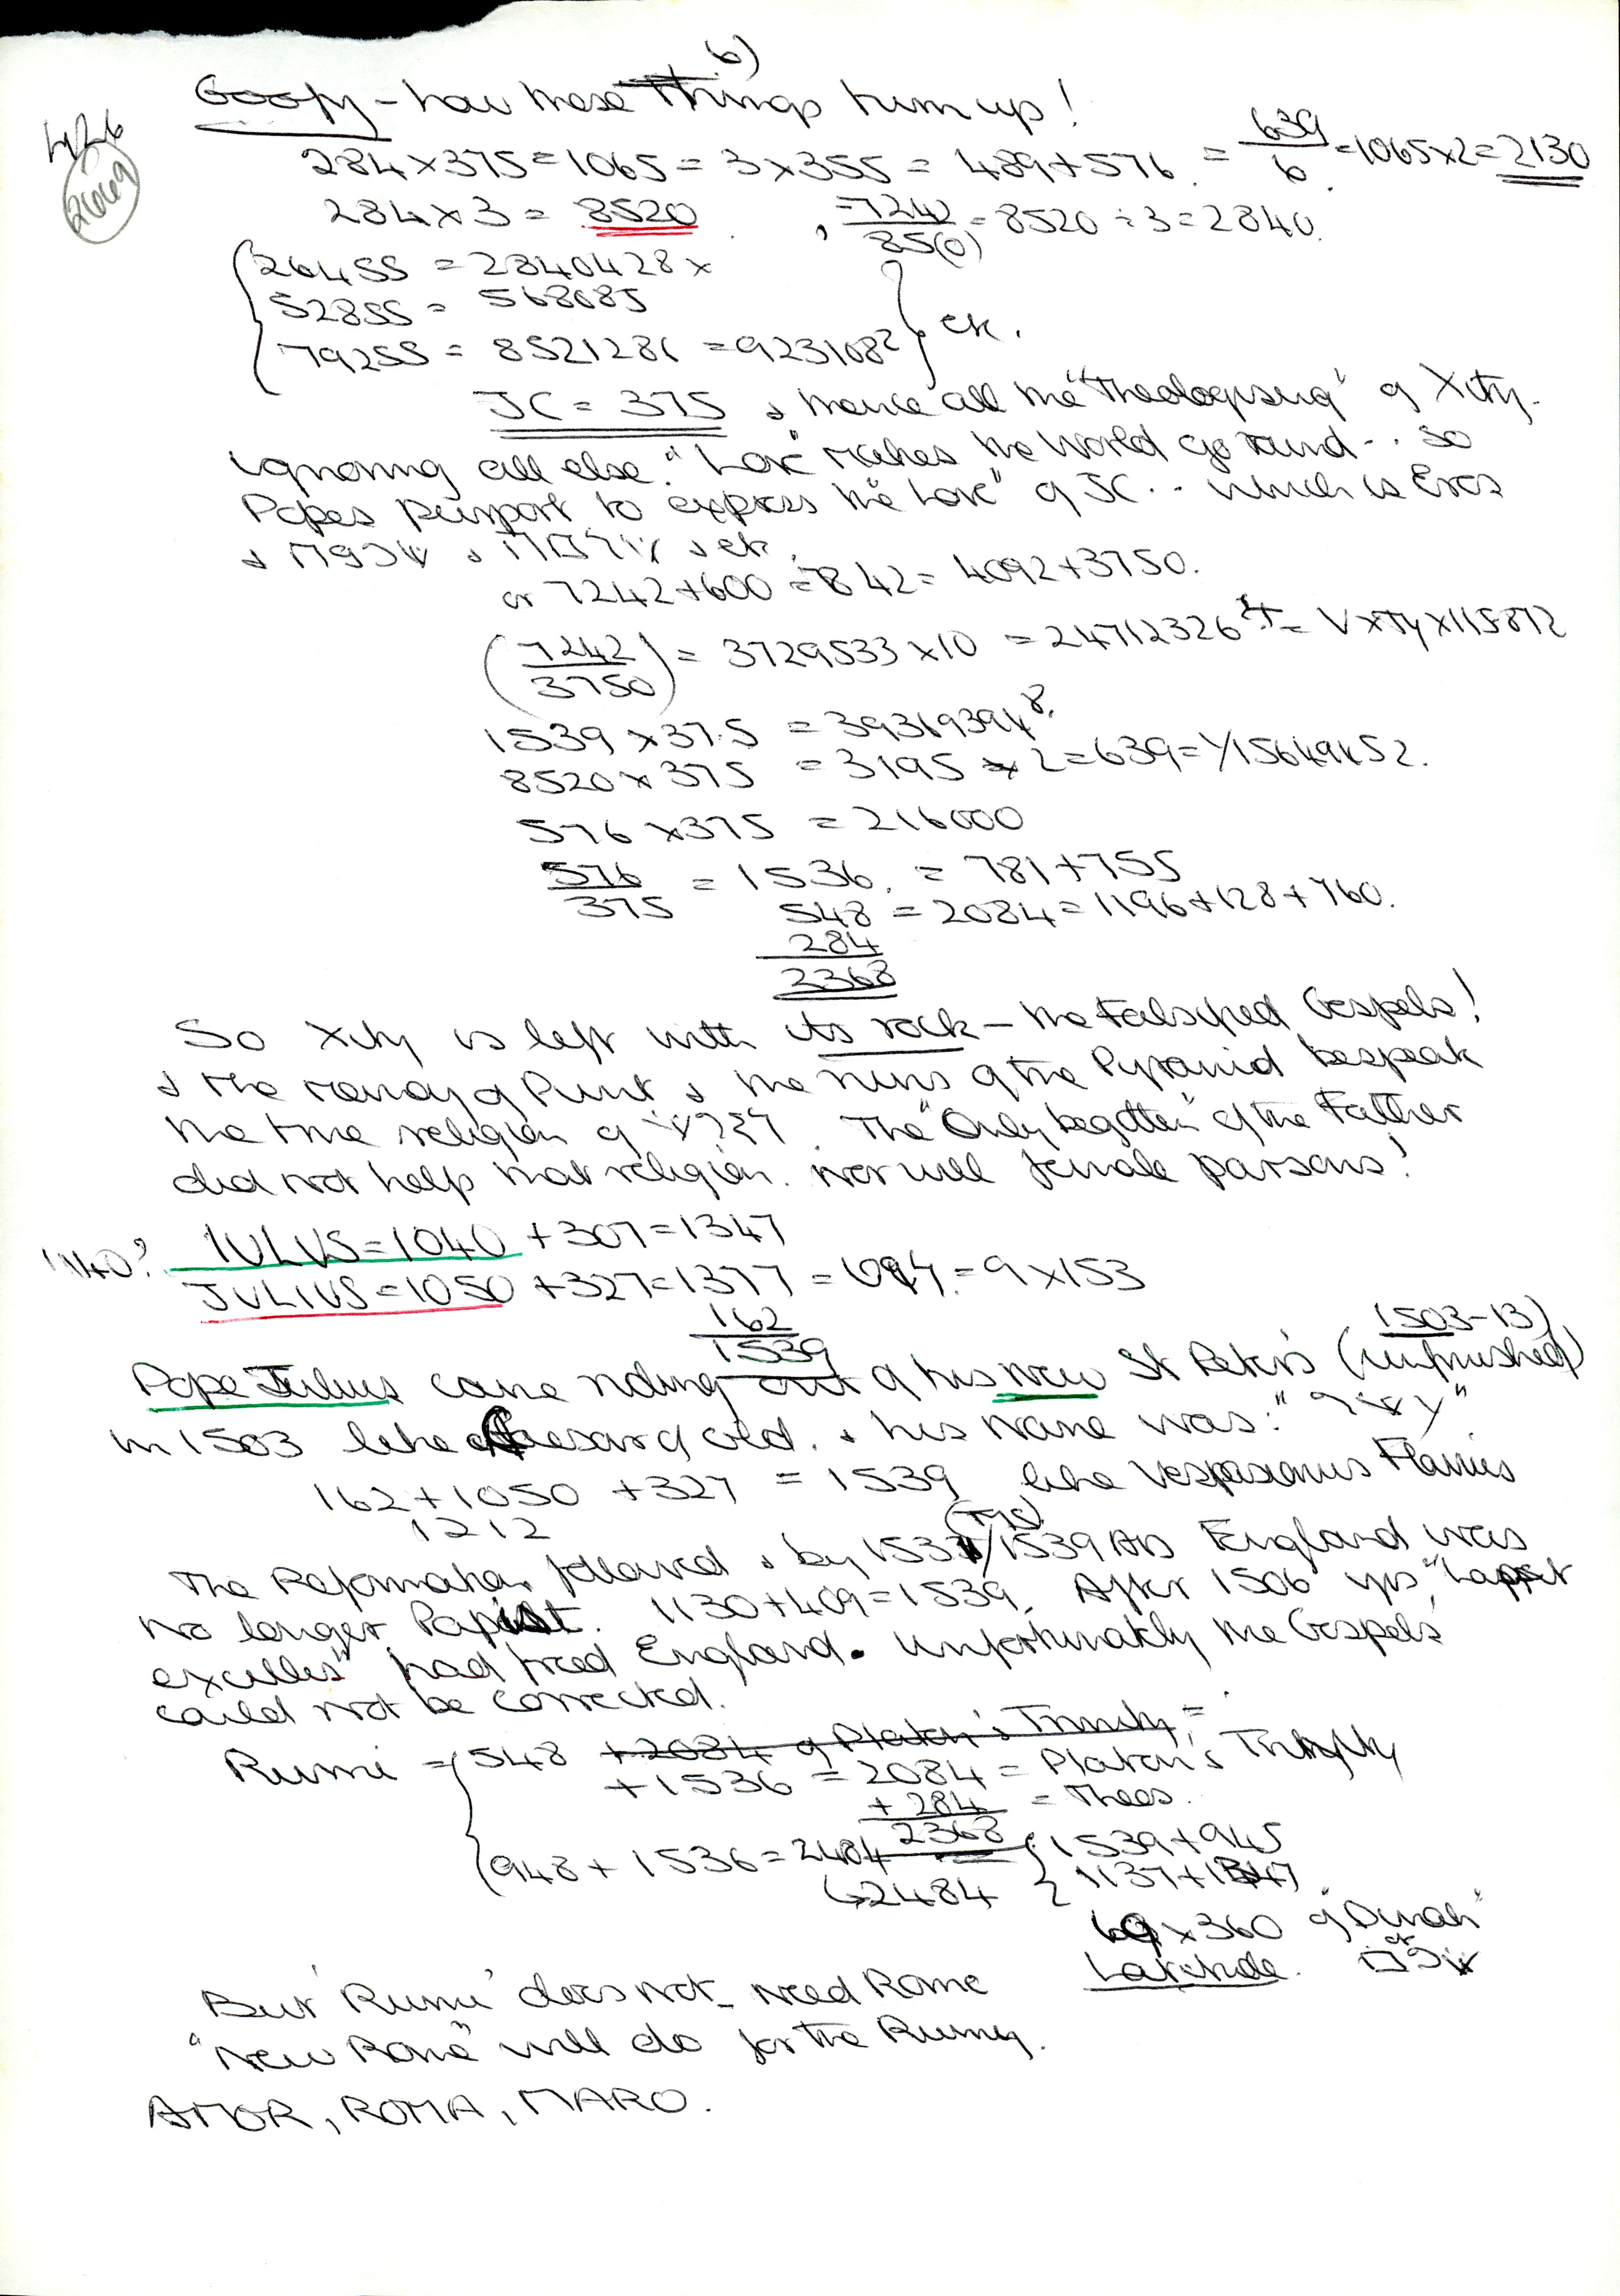 6)
Goofy - how these Things turn up!
426
2669
284 x 375 = 1065 = 3 x 355 = 489 + 576 = 639/6 = 1065 x 2 = 2130
284 x 3 = 8520 , 7242/85(0) = 8520 ÷ 3 = 2840.
26455 = 2840428 x
52855 = 568085
79255 = 8521286 = 9231082 } etc.
JC = 375 & hence all the "Theologising" of Xity.
ignoring all else. "Love" makes the World go round... So
Popes purport to express the "Love" of JC... which is Eros
& & etc.
or 7242 + 600 = 7842 = 4092 + 3750.
(7242/3750) = 3729533 x 10 = 24712326 = V x Ty x 115872
1539 x 37.5 = 39319394 8.
8520 x 375 = 3195 x 2 = 639 = 1/15649452.
576 x 375 = 216000
576/375 = 1536. = 781 + 755
548 = 2084 = 1196 + 128 + 760.
284
2368
So Xity is left with its rock - the Falsified Gospels!
& the memory of Punt & the ruins of the Pyramid bespeak
the true religion of . The "Only begotten" of the Father
did not help that religion. Nor will female parsons!
1140? IULUS = 1040 + 307 = 1347
JULIUS = 1050 + 327 = 1377 = = 9 x 153
162
1539
1503-13)
Pope Julius came riding out of his new St Peter's (unfinished)
in 1503 like Caesar of old. & his name was: " "
162 + 1050 + 327 = 1539 like Vespasianus Flavius
1212
The Reformation followed & by 1537/1539 AD England was
no longer Papist. 1130 + 409 = 1539. After 1506 yrs,
had freed England. Unfortunately the Gospels
could not be corrected.
Rumi = { 548 + 2084 of Platon's Trinity =
+ 1536 = 2084 = Platon's Trinity
+ 284 = Theos.
2368
948 + 1536 = 2484 { 1539 + 945
2484 1137 + 1347
69 x 360 of "Dinah"
Latitude. or
But 'Rumi' does not need Rome
"New Rome" will do for the Rumy.
AMOR, ROMA, MARO.